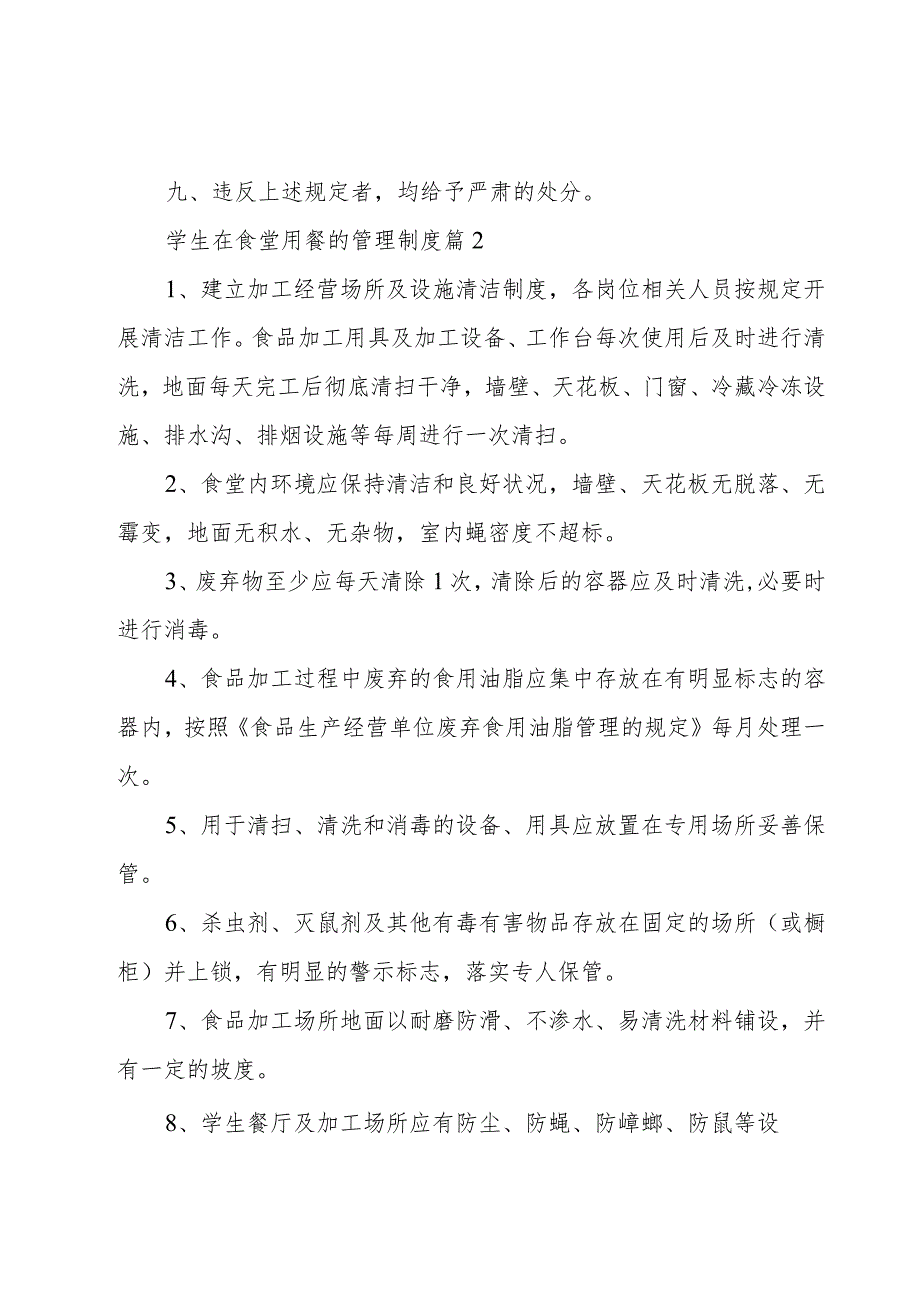 九、违反上述规定者，均给予严肃的处分。
学生在食堂用餐的管理制度篇2
1、建立加工经营场所及设施清洁制度，各岗位相关人员按规定开
展清洁工作。食品加工用具及加工设备、工作台每次使用后及时进行清
洗，地面每天完工后彻底清扫干净，墙壁、天花板、门窗、冷藏冷冻设
施、排水沟、排烟设施等每周进行一次清扫。
2、食堂内环境应保持清洁和良好状况，墙壁、天花板无脱落、无
霉变，地面无积水、无杂物，室内蝇密度不超标。
3、废弃物至少应每天清除1次，清除后的容器应及时清洗,必要时
进行消毒。
4、食品加工过程中废弃的食用油脂应集中存放在有明显标志的容
器内，按照《食品生产经营单位废弃食用油脂管理的规定》每月处理一
次。
5、用于清扫、清洗和消毒的设备、用具应放置在专用场所妥善保
管。
6、杀虫剂、灭鼠剂及其他有毒有害物品存放在固定的场所（或橱
柜）并上锁，有明显的警示标志，落实专人保管。
7、食品加工场所地面以耐磨防滑、不渗水、易清洗材料铺设，并
有一定的坡度。
8、学生餐厅及加工场所应有防尘、防蝇、防嶂螂、防鼠等设